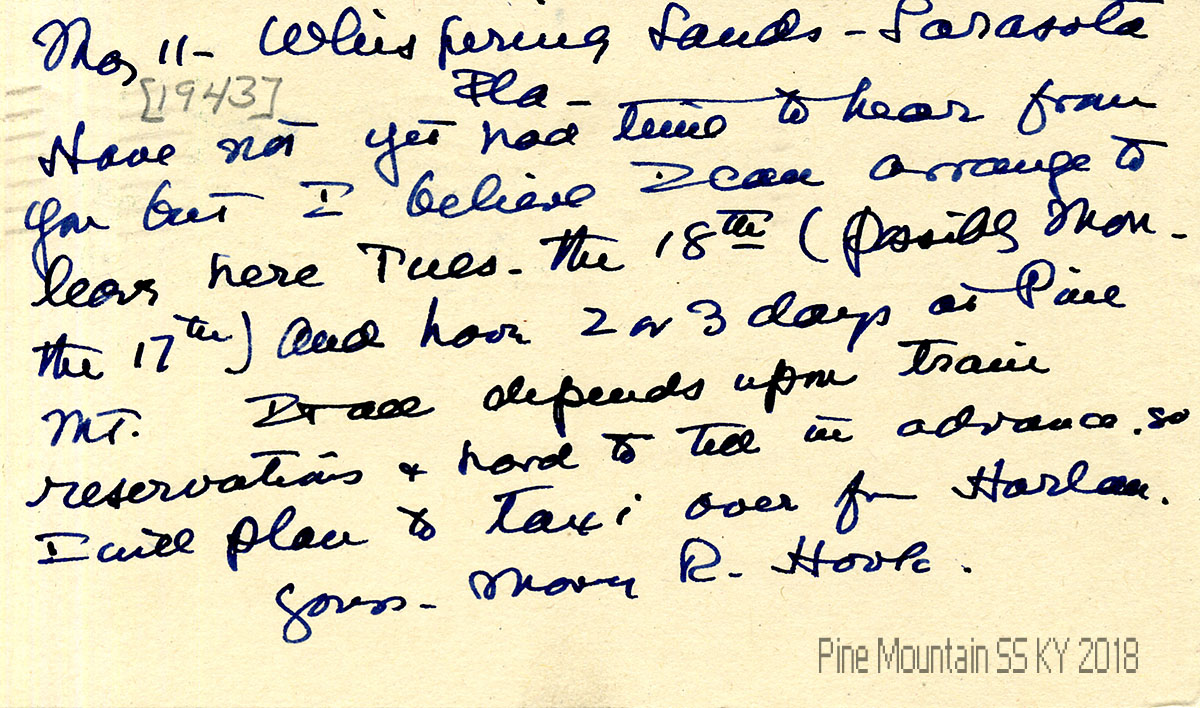 May 11 - Whispering Sands - Sarasota
[1943] Fla -
Have not yet had time to hear from
you but I believe I can arrange to
leave here Tues. the 18th (possibly Mon-
the 17th) and have 2 or 3 days at Pine
Mt. It all depends upon train
reservations & hard to tell in advance. so
I will plan to taxi over fm Harlan.
Yours - Mary R. Hook.
Pine Mountain SS KY 2018